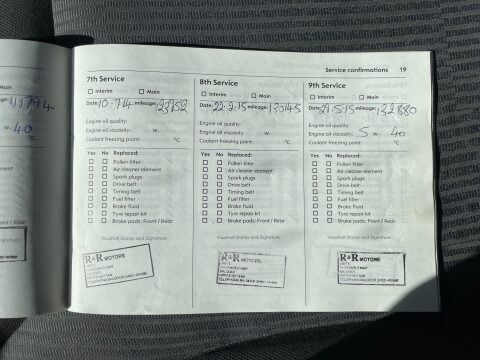 Service confirmations 19
Main
41794
W- 40
°C
7th Service
Interim Main
Date: 10-7-14 mileage: 123752
Engine oil quality:
Engine oil viscosity: W-
Coolant freezing point: °C
Yes No Replaced:
Pollen filter
Air cleaner element
Spark plugs
Drive belt
Timing belt
Fuel filter
Brake fluid
Tyre repair kit
Brake pads: Front / Rear
Vauxhall Stamp and Signature
R&R MOTORS
8th Service
Interim Main
Date: 22-2-15 mileage:
Engine oil quality:
Engine oil viscosity: W-
Coolant freezing point: °C
Yes No Replaced:
Pollen filter
Air cleaner element
Spark plugs
Drive belt
Timing belt
Fuel filter
Brake fluid
Tyre repair kit
Brake pads: Front / Rear
Vauxhall Stamp and Signature
R&R MOTORS
9th Service
Interim Main
Date: 21-5-15 mileage: 132880
Engine oil quality:
Engine oil viscosity: 5 W- 40
Coolant freezing point: °C
Yes No Replaced:
Pollen filter
Air cleaner element
Spark plugs
Drive belt
Timing belt
Fuel filter
Brake fluid
Tyre repair kit
Brake pads: Front / Rear
Vauxhall Stamp and Signature
R&R MOTORS